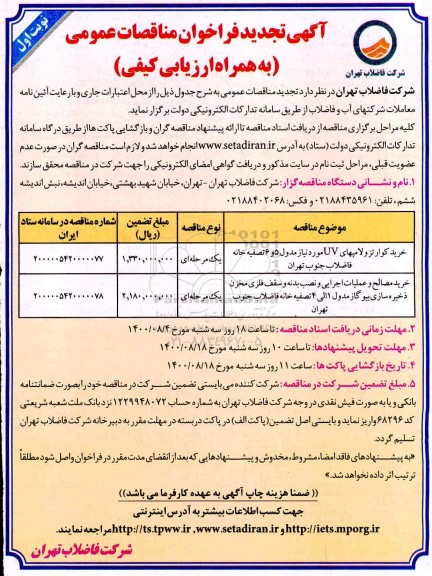 نوبت اول
آگهی تجدید فراخوان مناقصات عمومی
(به همراه ارزیابی کیفی)
شرکت فاضلاب تهران
شرکت فاضلاب تهران در نظر دارد تجدید مناقصات عمومی به شرح جدول ذیل را از محل اعتبارات جاری و با رعایت آئین نامه
معاملات شرکتهای آب و فاضلاب از طریق سامانه تدارکات الکترونیکی دولت برگزار نماید.
کلیه مراحل برگزاری مناقصه از دریافت اسناد مناقصه تا ارائه پیشنهاد مناقصه گران و بازگشایی پاکت ها از طریق درگاه سامانه
تدارکات الکترونیکی دولت (ستاد) به آدرس www.setadiran.ir انجام خواهد شد و لازم است مناقصه گران در صورت عدم
عضویت قبلی، مراحل ثبت نام در سایت مذکور و دریافت گواهی امضای الکترونیکی را جهت شرکت در مناقصه محقق سازند.
۱. نام و نشانی دستگاه مناقصه گزار: شرکت فاضلاب تهران - تهران، خیابان شهید بهشتی، خیابان اندیشه، نبش اندیشه
ششم، تلفن: ۰۲۱۸۸۴۳۵۹۶۱ و فکس: ۰۲۱۸۸۴۰۲۰۶۸
موضوع مناقصه نوع مناقصه مبلغ تضمین (ریال) شماره مناقصه در سامانه ستاد ایران
خرید کوارتز و لامپهای UV مورد نیاز مدول ۵ و ۶ تصفیه خانه فاضلاب جنوب تهران یک مرحله ای ۱,۳۳۰,۰۰۰,۰۰۰ ۲۰۰۰۰۰۵۴۲۰۰۰۰۰۷۷
خرید مصالح و عملیات اجرایی و نصب بدنه و سقف فلزی مخزن ذخیره سازی بیوگاز مدول ۱ الی ۴ تصفیه خانه فاضلاب جنوب تهران یک مرحله ای ۲,۱۸۰,۰۰۰,۰۰۰ ۲۰۰۰۰۰۵۴۲۰۰۰۰۰۷۸
۲. مهلت زمانی دریافت اسناد مناقصه: تا ساعت ۱۸ روز سه شنبه مورخ ۱۴۰۰/۰۸/۴
۳. مهلت تحویل پیشنهادها: تا ساعت ۱۰ روز سه شنبه مورخ ۱۴۰۰/۰۸/۱۸
۴. تاریخ بازگشایی پاکت ها: ساعت ۱۱ روز سه شنبه مورخ ۱۴۰۰/۰۸/۱۸
۵. مبلغ تضمین شرکت در مناقصه: شرکت کننده می بایستی تضمین شرکت در مناقصه خود را بصورت ضمانتنامه
بانکی و یا به صورت فیش نقدی در وجه شرکت فاضلاب تهران به شماره حساب ۱۲۲۹۹۴۸۰۷۲ نزد بانک ملت شعبه شریعتی
کد ۶۸۲۹۶ واریز نماید و بایستی اصل تضمین (پاکت الف) در پاکت دربسته در مهلت مقرر به دبیرخانه شرکت فاضلاب تهران
تسلیم گردد.
«به پیشنهادهای فاقد امضا، مشروط، مخدوش و پیشنهادهایی که بعد از انقضای مدت مقرر در فراخوان واصل شود مطلقاً
ترتیب اثر داده نخواهد شد.»
(( ضمنا هزینه چاپ آگهی به عهده کارفرما می باشد))
جهت کسب اطلاعات بیشتر به آدرس اینترنتی
http://iets.mporg.ir و http://ts.tpww.ir ,www.setadiran.ir مراجعه نمایند.
شرکت فاضلاب تهران